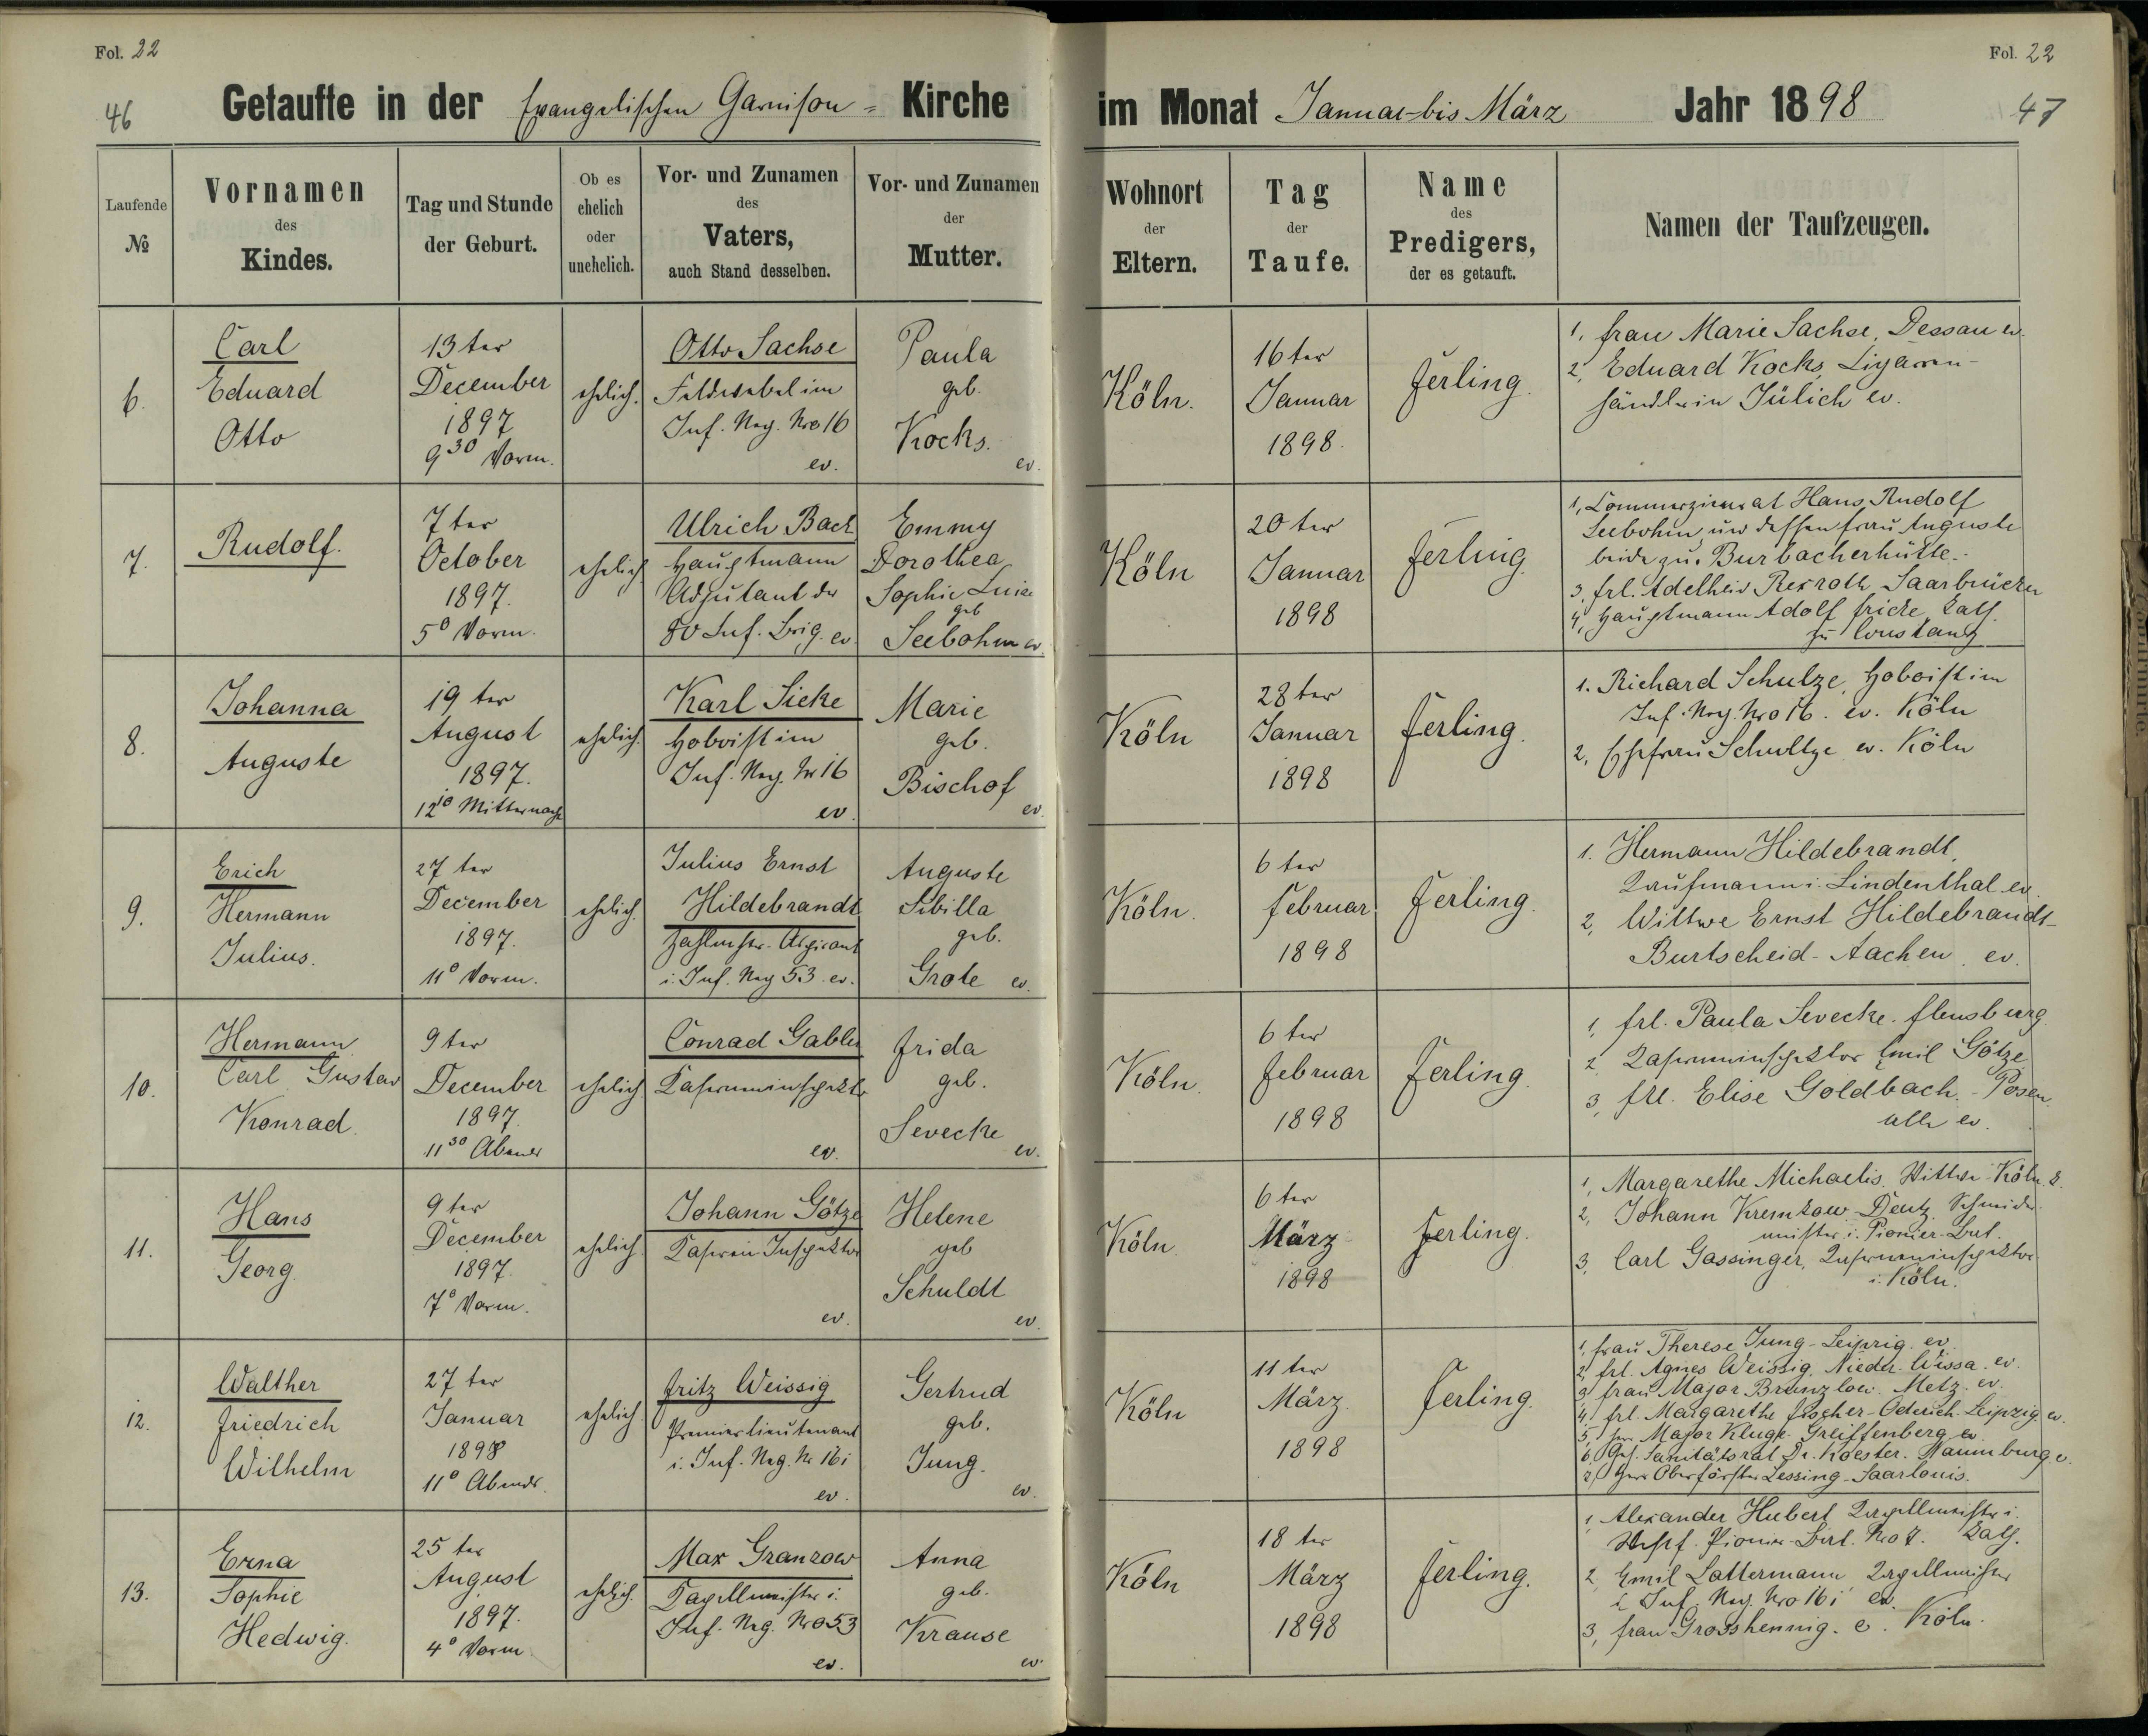 Fol. 22
46
Getaufte in der Evangelischen Garnison- Kirche
Laufende
№
Vornamen
des
Kindes.
Tag und Stunde
der Geburt.
Ob es
ehelich
oder
unehelich.
Vor- und Zunamen
des
Vaters,
auch Stand desselben.
Vor- und Zunamen
der
Mutter.
Fol. 22
im Monat Januar-bis März Jahr 1898
47
Wohnort
der
Eltern.
Tag
der
Taufe.
Name
des
Predigers,
der es getauft.
Namen der Taufzeugen.
6.
Carl
Eduard
Otto
13ter
December
1897
9 30 Vorm.
ehelich.
Otto Sachse
Feldwebel im
Inf. Reg. Nro 16
ev.
Paula
geb.
Kocks.
ev.
Köln.
16ter
Januar
1898.
Ferling.
1, Frau Marie Sachse, Dessau ev.
2, Eduard Kocks, Cigarren-
händler in Jülich ev.
7.
Rudolf.
7ter
October
1897.
5 0 Vorm.
ehelich
Ulrich Back
Hauptmann
Adjutant der
80 Inf. Brig. ev.
Emmy
Dorothea
Sophie Luise
geb
Seebohm ev.
Köln
20ter
Januar
1898
Ferling.
1, Commerzienrat Hans Rudolf
Seebohm und dessen Frau Auguste
beide zu Burbacherhütte.
3, Frl. Adelheid Rexroth, Saarbrücken
4, Hauptmann Adolf Fricke, kath.
zu Constanz
8.
Johanna
Auguste
19ter
August
1897.
12 10 Mitternacht
ehelich.
Karl Sieke
Hoboist im
Inf. Reg. Nr 16
ev.
Marie
geb.
Bischof
ev.
Köln
28ter
Januar
1898
Ferling.
1. Richard Schulze, Hoboist im
Inf. Reg. Nro 16. ev. Köln
2, Ehefrau Schultze ev. Köln
9.
Erich
Hermann
Julius.
27ter
December
1897.
11 0 Vorm.
ehelich.
Julius Ernst
Hildebrandt
Zahlmstr. Aspirant
i. Inf. Reg 53. ev.
Auguste
Sibilla
geb.
Grote ev.
Köln.
6ter
Februar
1898
Ferling.
1. Hermann Hildebrandt,
Kaufmann i. Lindenthal ev.
2, Wittwe Ernst Hildebrandt-
Burtscheid-Aachen. ev.
10.
Hermann
Carl Gustav
Konrad.
9ter
December
1897.
11 30 Abends
ehelich.
Conrad Gabler
Kaserneninspektor
ev.
Frida
geb.
Sevecke
ev.
Köln.
6ter
Februar
1898
Ferling.
1, Frl. Paula Sevecke. Flensburg
2, Kaserneninspektor Emil Götze
3, Frl. Elise Goldbach.-Posen.
alle ev.
11.
Hans
Georg.
9ter
December
1897.
7 0 Vorm.
ehelich.
Johann Götze
Kasernen Inspektor
ev.
Helene
geb
Schuldt
ev.
Köln.
6ter
März
1898
Ferling.
1, Margarethe Michaelis. Wittwe Köln.
2, Johann Kremkow-Deutz Schneider-
meister i. Pionier-Bat.
3, Carl Gassinger, Kaserneninspektor
i. Köln.
12.
Walther
Friedrich
Wilhelm
27ter
Januar
1898
11 0 Abends.
ehelich.
Fritz Weissig
Premierlieutenant
i. Inf. Reg. Nr 16 i
ev.
Gertrud
geb.
Jung.
ev.
Köln
11ter
März.
1898
Ferling.
1, Frau Therese Jung-Leipzig. ev.
2, Frl. Agnes Weissig, Nieder-Wissa. ev.
3, Frau Major Brunzlow. Metz. ev.
4, Frl. Margarethe Fischer-Oderich-Leipzig. ev.
5, Major Kluge-Greiffenberg ev.
6, Geh. Sanitätsrat Dr. Koester. Naumburg e.
7, Herr Oberförster Lessing-Saarlouis.
13.
Erna
Sophie
Hedwig.
25ter
August
1897.
4 0 Vorm.
ehelich.
Max Granzow
Kapellmeister i.
Inf. Reg. Nro 53
ev.
Anna
geb.
Krause
ev.
Köln
18ter
März
1898
Ferling.
1, Alexander Hubert Kapellmeister i.
Westf. Pionier-Bat. Nro 7. kath.
2, Emil Lattermann Kapellmeister
i. Inf. Reg. Nro 16 i ev.
3, Frau Grosshennig. e. Köln.